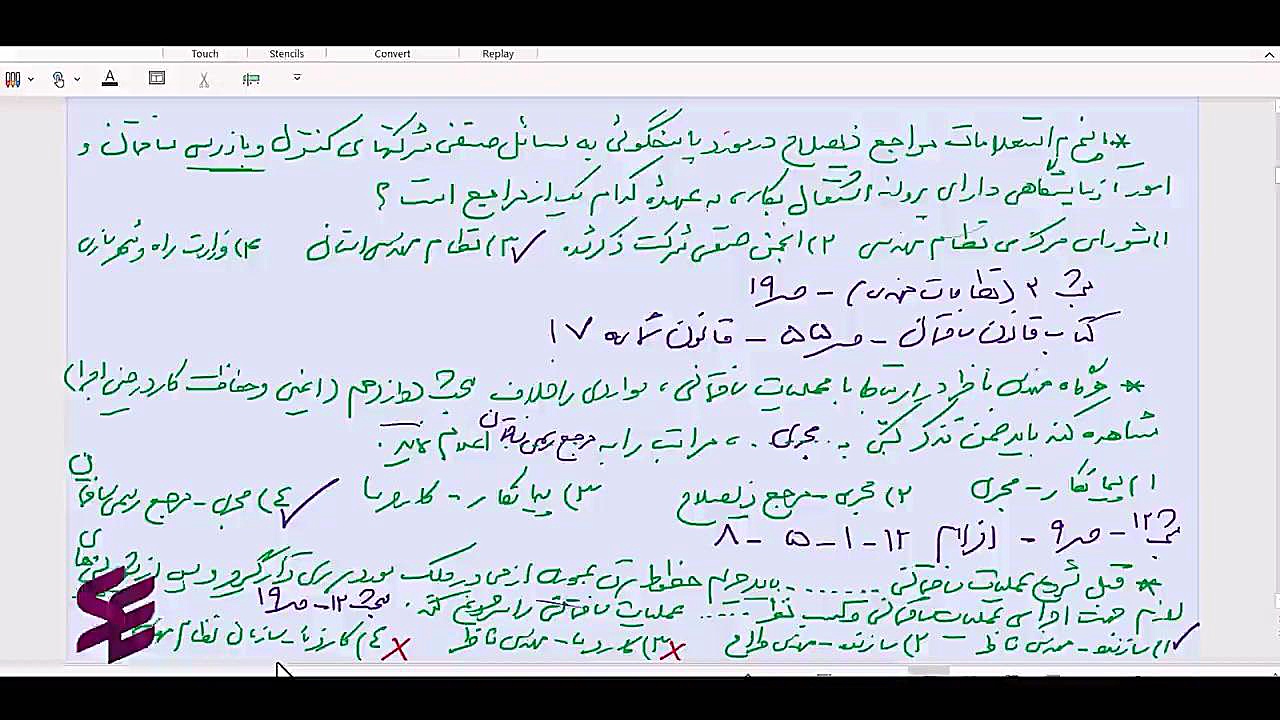 Touch Stencils Convert Replay
* انجام استعلامات مراجع ذیصلاح در مورد پاسخگوئی به مسائل صنفی شرکتهای کنترل و بازرسی ساختمان و
امور آزمایشگاهی دارای پروانه اشتغال بکار، به عهده کدام یک از مراجع است ؟
۱) شورای مرکزی نظام مهندسی ۲) انجمن صنفی شرکت ذکر شده. ۳) نظام مهندسی استان ۴) وزارت راه و شهرسازی
مبحث ۲ (نظامات اداری) - ص ۱۹
کتاب قانون ساختمان - ص ۵۵ - قانون شماره ۱۷
* هرگاه مهندس ناظر در ارتباط با عملیات ساختمانی، مواردی را خلاف مبحث دوازدهم (ایمنی و حفاظت کار در حین اجرا)
مشاهده کند باید ضمن تذکر کتبی به .. مجری .. ، مراتب را به مرجع رسمی ساختمان اعلام نماید.
۱) پیمانکار - مجری ۲) مجری - مرجع ذیصلاح ۳) پیمانکار - کارفرما ۴) مجری - مرجع رسمی ساختمان
مبحث ۱۲ - ص ۹ - الزام ۱۲-۱-۵-۸
* قبل شروع عملیات ساختمانی ........ باید حریم خطوط برق عبوری از حد در ملک مورد بررسی قرار گیرد و پس از
لازم جهت اجرای عملیات ساختمانی و کسب نظر ..... عملیات ساختمانی را شروع کند. مبحث ۱۲ - ص ۱۹
۱) سازنده - مهندس ناظر ۲) سازنده - مهندس طراح ۳) کارفرما - مهندس ناظر ۴) کارفرما - سازمان نظام